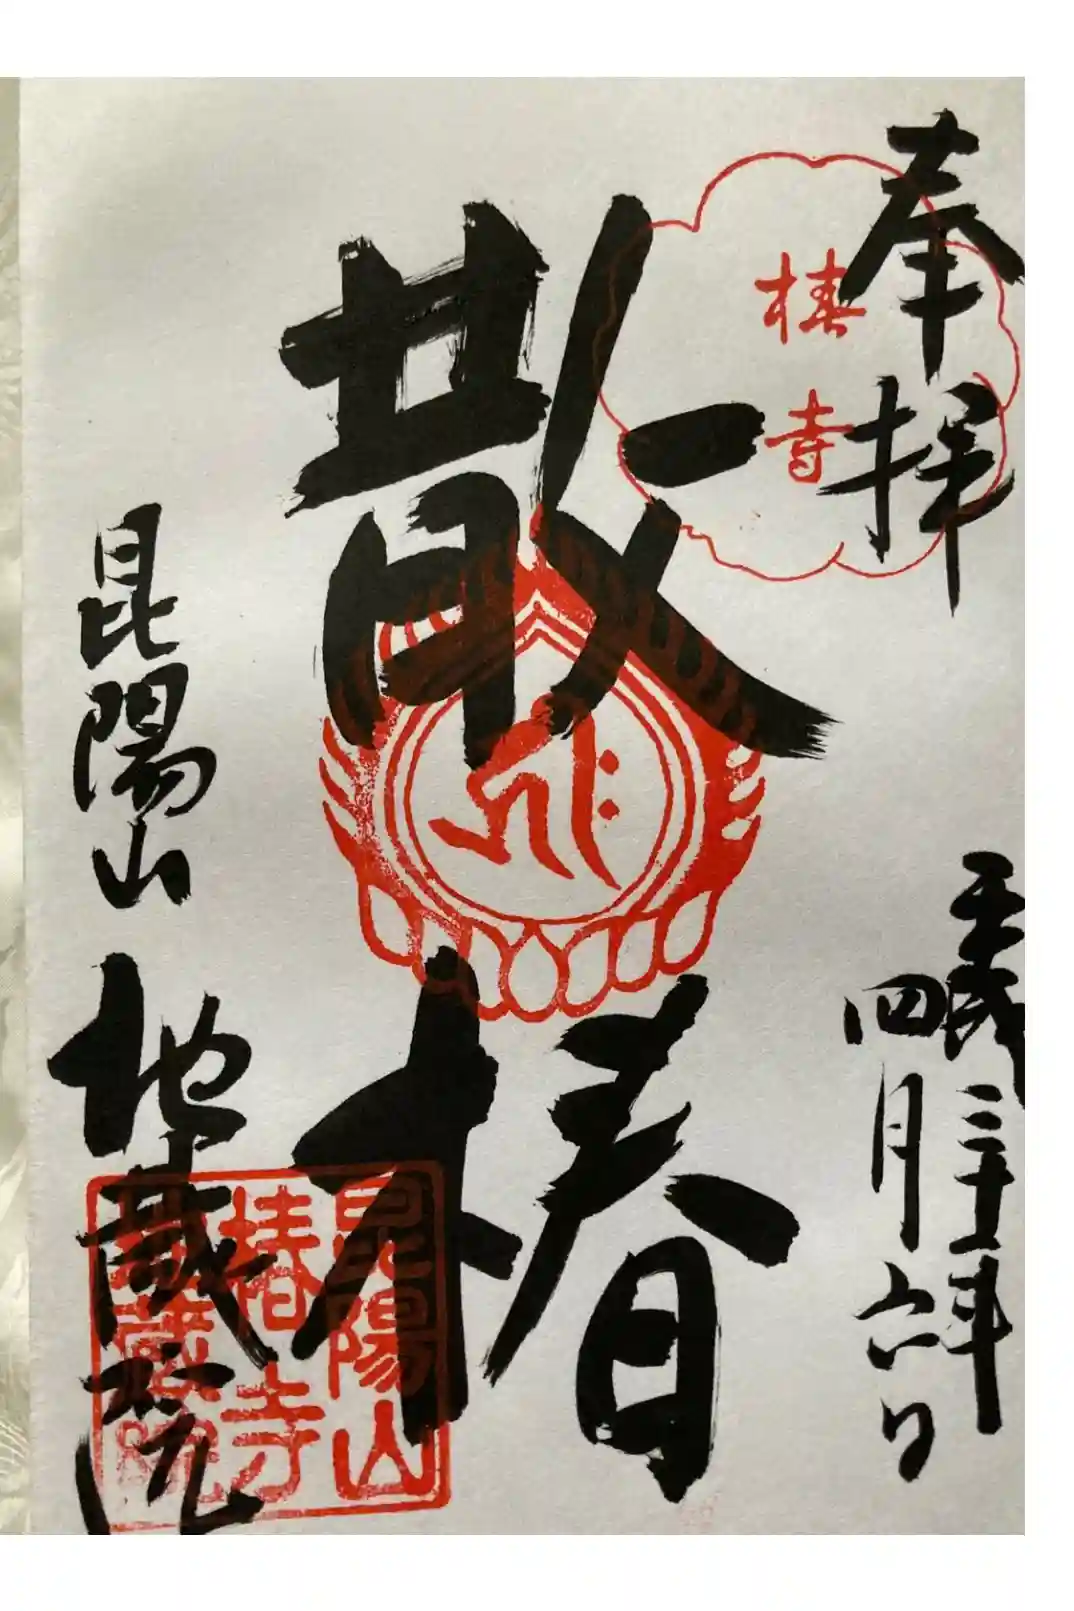 奉拝
椿寺
平成三十年
四月六日
散椿
昆陽山
地蔵院
昆陽山
椿寺
地蔵院